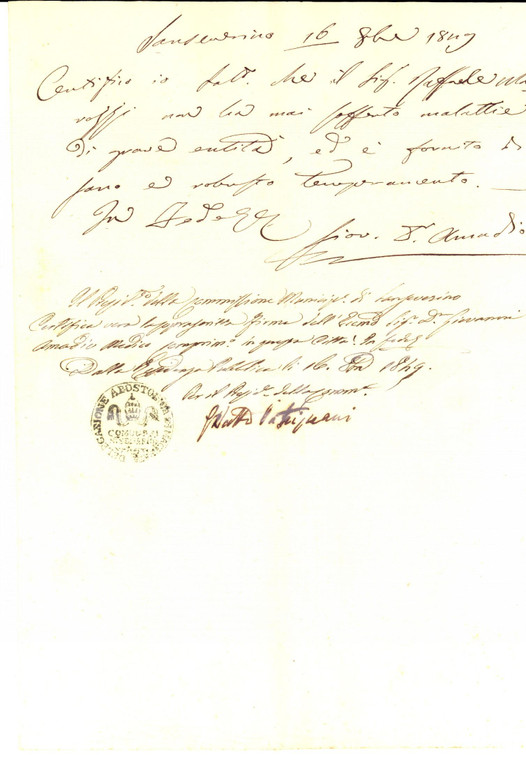 Sanseverino 16 8bre 1849
Certifico io sott.º che il Sig. Raffaele Ma
rozzi non ha mai sofferto malattie
di grave entità, ed è fornito di
sano e robusto temperamento.
In Fede
Giov. Dr. Amadio
Il della Commissione Municip. di Sanseverino
Certifica vera la soprapposta firma dell' Sig. Dr. Giovanni
Amadio Medico in questa Città. In fede
Dalla Pubblica li 16. 1849.
Per il della
DELEGAZIONE APOSTOLICA